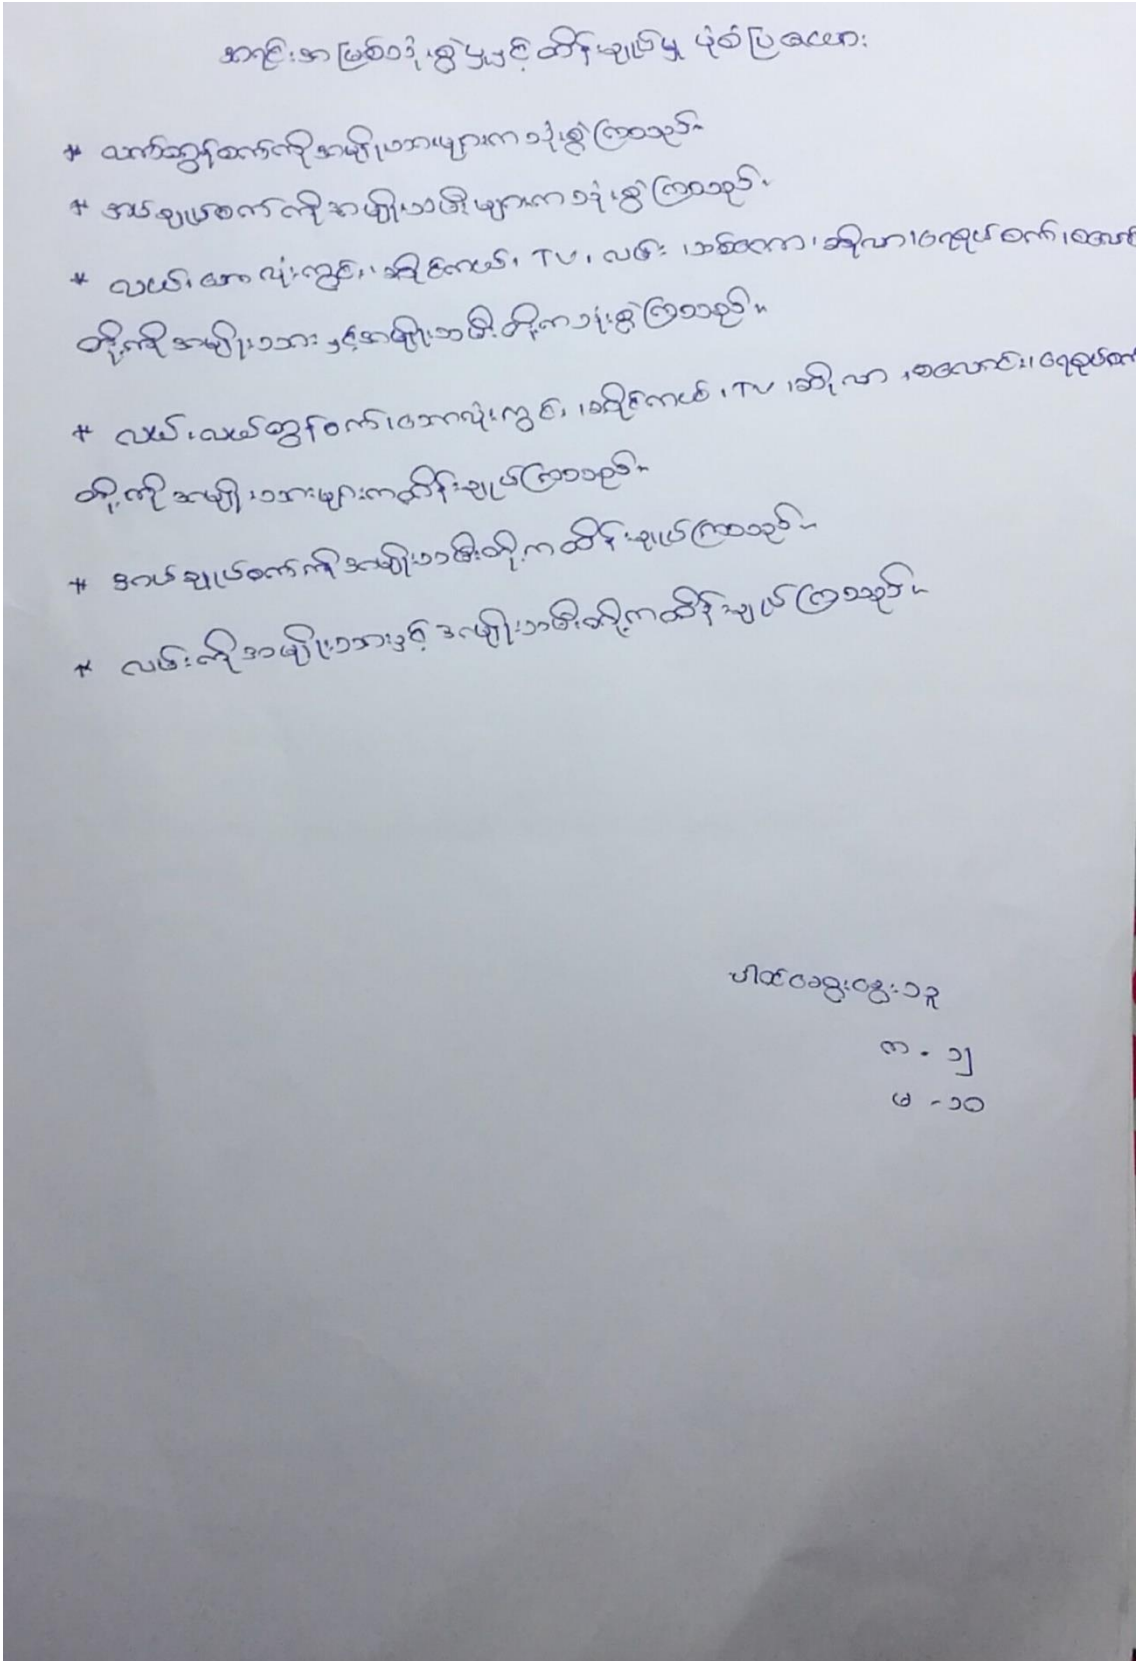 အရင်းအမြစ်သုံးစွဲမှုနှင့်ထိန်းချုပ်မှု ပုံစံပြဇယား
* လက်တွန်းစက်ကိုအမျိုးသားများကသုံးစွဲကြသည်။
* အပ်ချုပ်စက်ကိုအမျိုးသမီးများကသုံးစွဲကြသည်။
* လယ်၊ ဘောလုံးကွင်း၊ ဆိုင်ကယ်၊ TV၊ လမ်း၊ သစ်တော၊ ဆိုလာ၊ ရေစုပ်စက်၊ စလောင်း
တို့ကိုအမျိုးသားနှင့်အမျိုးသမီးတို့ကသုံးစွဲကြသည်။
* လယ်၊ လယ်ထွန်စက်၊ ဘောလုံးကွင်း၊ ဆိုင်ကယ်၊ TV ၊ ဆိုလာ ၊ စလောင်း၊ ရေစုပ်စက်
တို့ကိုအမျိုးသားများကထိန်းချုပ်ကြသည်။
* အပ်ချုပ်စက်ကိုအမျိုးသမီးတို့ကထိန်းချုပ်ကြသည်။
* လမ်းကိုအမျိုးသားနှင့်အမျိုးသမီးတို့ကထိန်းချုပ်ကြသည်။
ပါဝင်ဆွေးနွေးသူ
က - ၁၂
မ - ၁၀